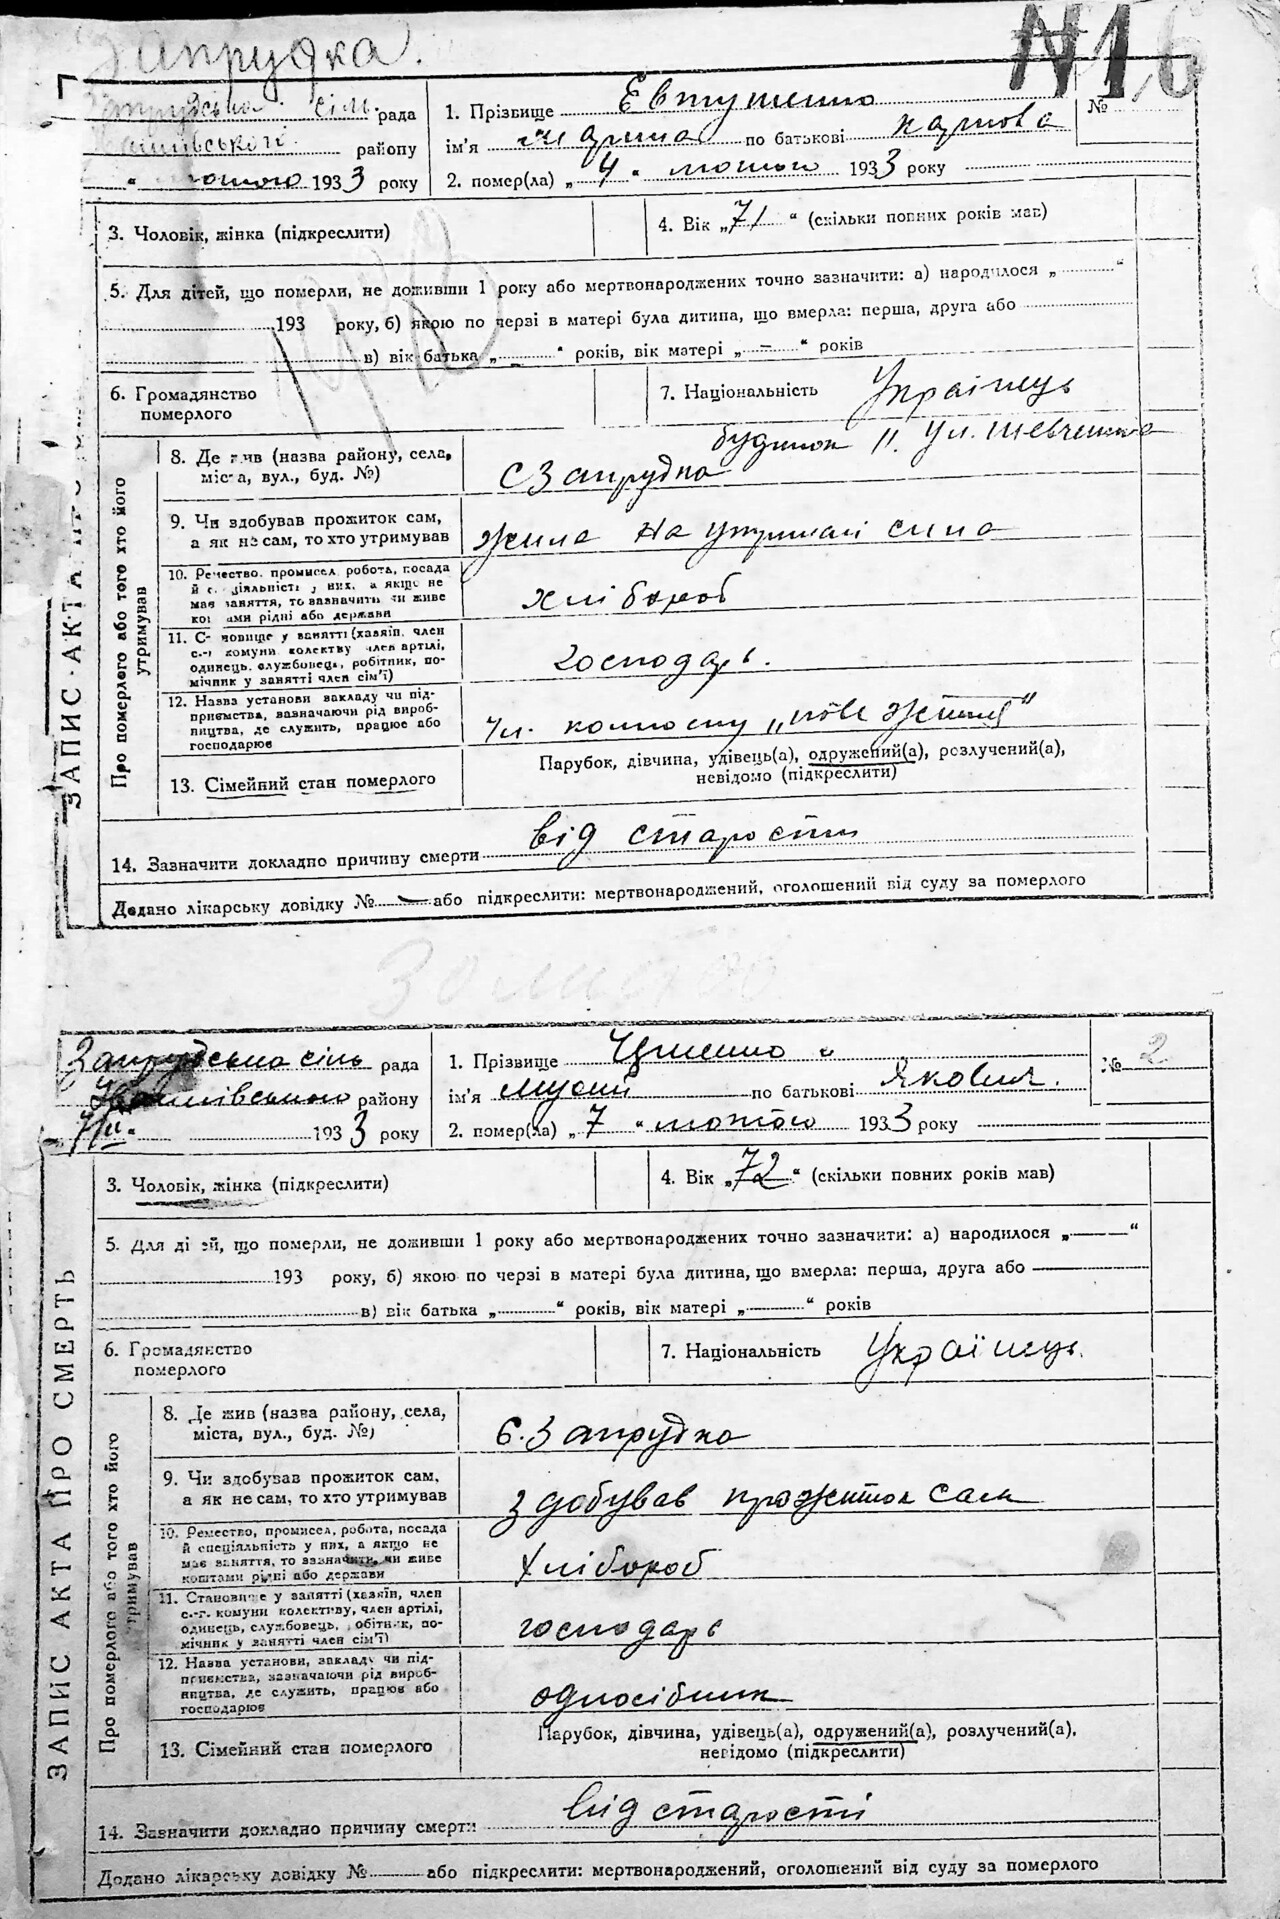 Запрудка.
№ 1
Запрудська сіль. рада
району
" лютого 1933 року
1. Прізвище Евтушенко
№
ім'я Марина по батькові Карпова
2. помер(ла) „ 4 " лютого 1933 року
3. Чоловік, жінка (підкреслити)
4. Вік „71" (скільки повних років мав)
5. Для дітей, що померли, не доживши 1 року або мертвонароджених точно зазначити: а) народилося „ "
193 року, б) якою по черзі в матері була дитина, що вмерла: перша, друга або
в) вік батька „ " років, вік матері „ – " років
6. Громадянство померлого
7. Національність Українець
ЗАПИС АКТА
Про померлого або того хто його утримував
8. Де жив (назва району, села,
міста, вул., буд. №)
будинок 11. Ул. Шевченка
с Запрудка
9. Чи здобував прожиток сам,
а як не сам, то хто утримував
жила на утримані сина
10. Ремество, промисел, робота, посада
й спеціяльність у них, а якщо не
має заняття, то зазначити чи живе
коштами рідні або держави
хлібороб
11. Становище у занятті (хазяїн, член
с.-г. комуни колективу член артілі,
одинець, службовець, робітник, по-
мічник у занятті член сім'ї)
господарь.
12. Назва установи закладу чи під-
приємства, зазначаючи рід вироб-
ництва, де служить, працює або
господарює
чл. колгоспу „нове життя"
13. Сімейний стан померлого
Парубок, дівчина, удівець(а), одружений(а), розлучений(а),
невідомо (підкреслити)
14. Зазначити докладно причину смерти від старости
Додано лікарську довідку № — або підкреслити: мертвонароджений, оголошений від суду за померлого
Запрудська сіль рада
району
7/II. 1933 року
1. Прізвище
№ 2
ім'я Мусій по батькові Якович.
2. помер(ла) „ 7 " лютого 1933 року
3. Чоловік, жінка (підкреслити)
4. Вік „72" (скільки повних років мав)
5. Для дітей, що померли, не доживши 1 року або мертвонароджених точно зазначити: а) народилося „—"
193 року, б) якою по черзі в матері була дитина, що вмерла: перша, друга або
в) вік батька „ " років, вік матері „ " років
6. Громадянство померлого
7. Національність Українець.
ЗАПИС АКТА ПРО СМЕРТЬ
Про померлого або того хто його утримував
8. Де жив (назва району, села,
міста, вул., буд. №)
с. Запрудка
9. Чи здобував прожиток сам,
а як не сам, то хто утримував
здобував прожиток сам
10. Ремество, промисел, робота, посада
й спеціяльність у них, а якщо не
має заняття, то зазначити, чи живе
коштами рідні або держави
хлібороб
11. Становище у занятті (хазяїн, член
с.-г. комуни колективу, член артілі,
одинець, службовець, робітник, по-
мічник у занятті член сім'ї)
господарь
12. Назва установи, закладу чи під-
приємства, зазначаючи рід вироб-
ництва, де служить, працює або
господарює
односібник
13. Сімейний стан померлого
Парубок, дівчина, удівець(а), одружений(а), розлучений(а),
невідомо (підкреслити)
14. Зазначити докладно причину смерти від старості
Додано лікарську довідку № або підкреслити: мертвонароджений, оголошений від суду за померлого